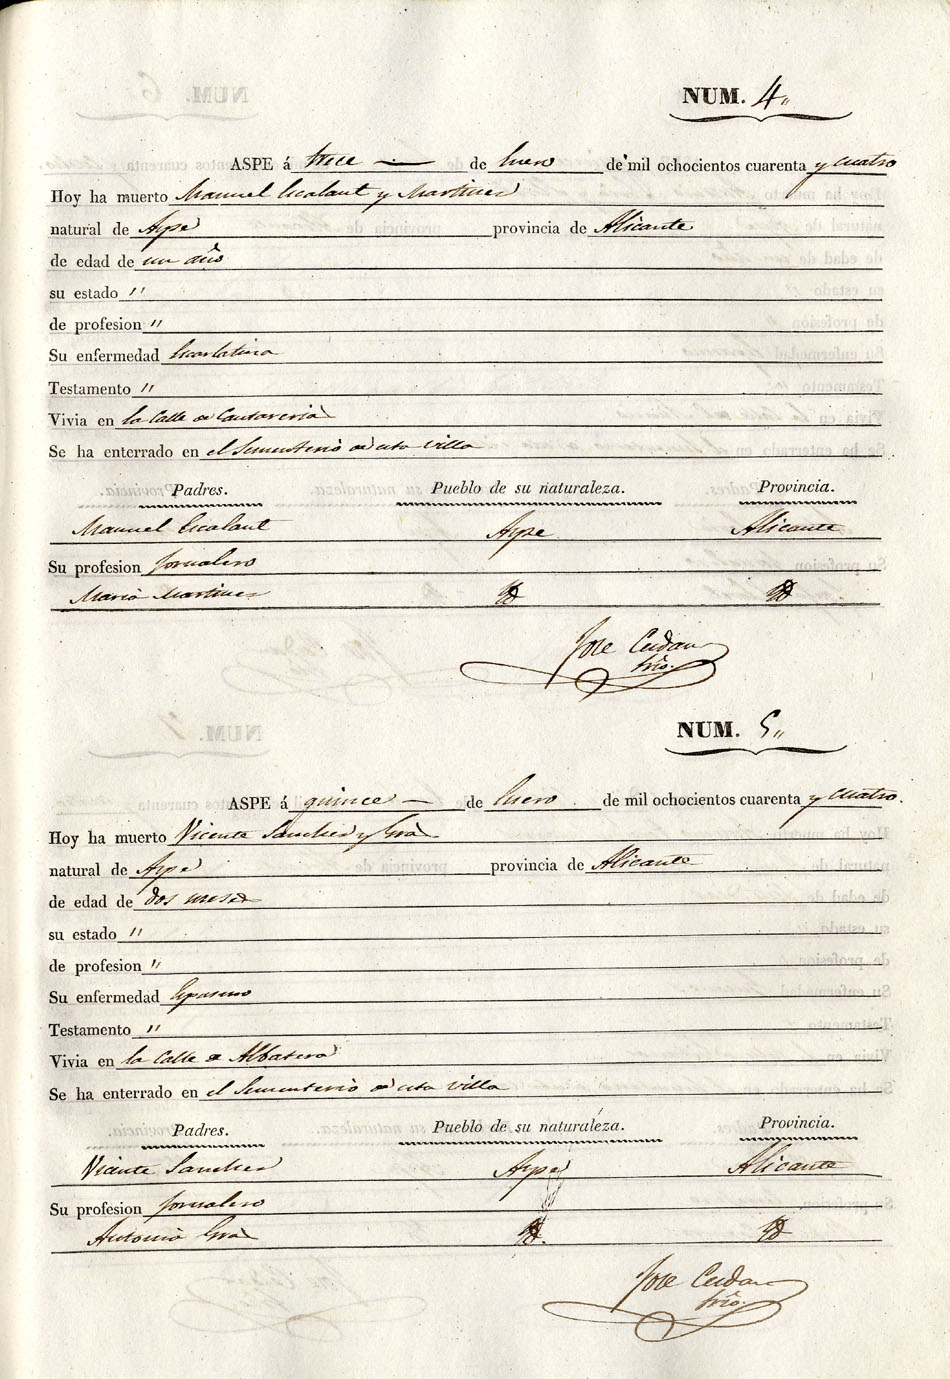 NUM. 4,,
ASPE á trece — de Enero de mil ochocientos cuarenta y cuatro
Hoy ha muerto Manuel Escalant y Martinez
natural de Aspe provincia de Alicante
de edad de un año
su estado "
de profesion "
Su enfermedad Escarlatina
Testamento "
Vivia en la Calle de Cantareria
Se ha enterrado en el Sementerio de esta villa
Padres. Pueblo de su naturaleza. Provincia.
Manuel Escalant Aspe Alicante
Su profesion Jornalero
Maria Martinez Id Id
Jose Cerdan
Srio.
NUM. 5,,
ASPE á quince — de Enero de mil ochocientos cuarenta y cuatro.
Hoy ha muerto Vicente Sanchez y Grà
natural de Aspe provincia de Alicante
de edad de dos meses
su estado "
de profesion "
Su enfermedad Espasmo
Testamento "
Vivia en la Calle de Albatera
Se ha enterrado en el Sementerio de esta villa
Padres. Pueblo de su naturaleza. Provincia.
Vicente Sanchez Aspe Alicante
Su profesion Jornalero
Antonia Grà Id. Id
Jose Cerdan
Srio.